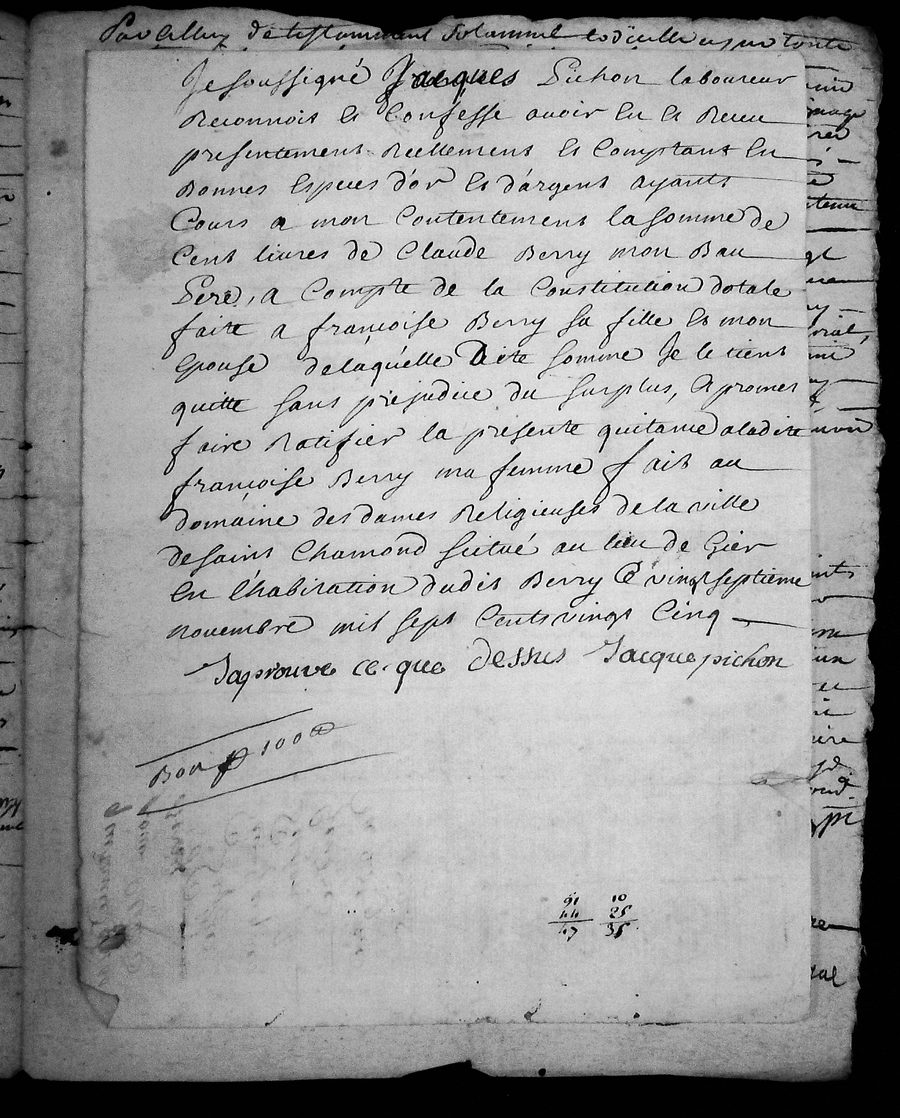 Par Celluy de testamment Solamnel codicille ou par toute
Je soussigné Jacques Pichon laboureur
Reconnois et Confesse avoir Eu et Receu
presentement Reellement et Comptant En
Bonnes Especes d'or et d'argent ayants
Cours a mon Contentement la somme de
Cent livres de Claude Berry mon Bau
Pere, a Compte de la Constitution dotale
faite a françoise Berry sa fille et mon
epouse delaquelle Dite somme Je le tiens
quitte sans prejudice du surplus, et promet
faire Ratifier la presente quitance aladite
françoise Berry ma femme fait au
domaine des dames Religieuses de la ville
de saint Chamond scitué au lieu de Gier
En l'habitation dudit Berry Ce vingt septieme
novembre mil sept Cents vingt Cinq
Japrouve ce que dessus Jacque pichon
Bon p 100
91 10
44 25
47 35